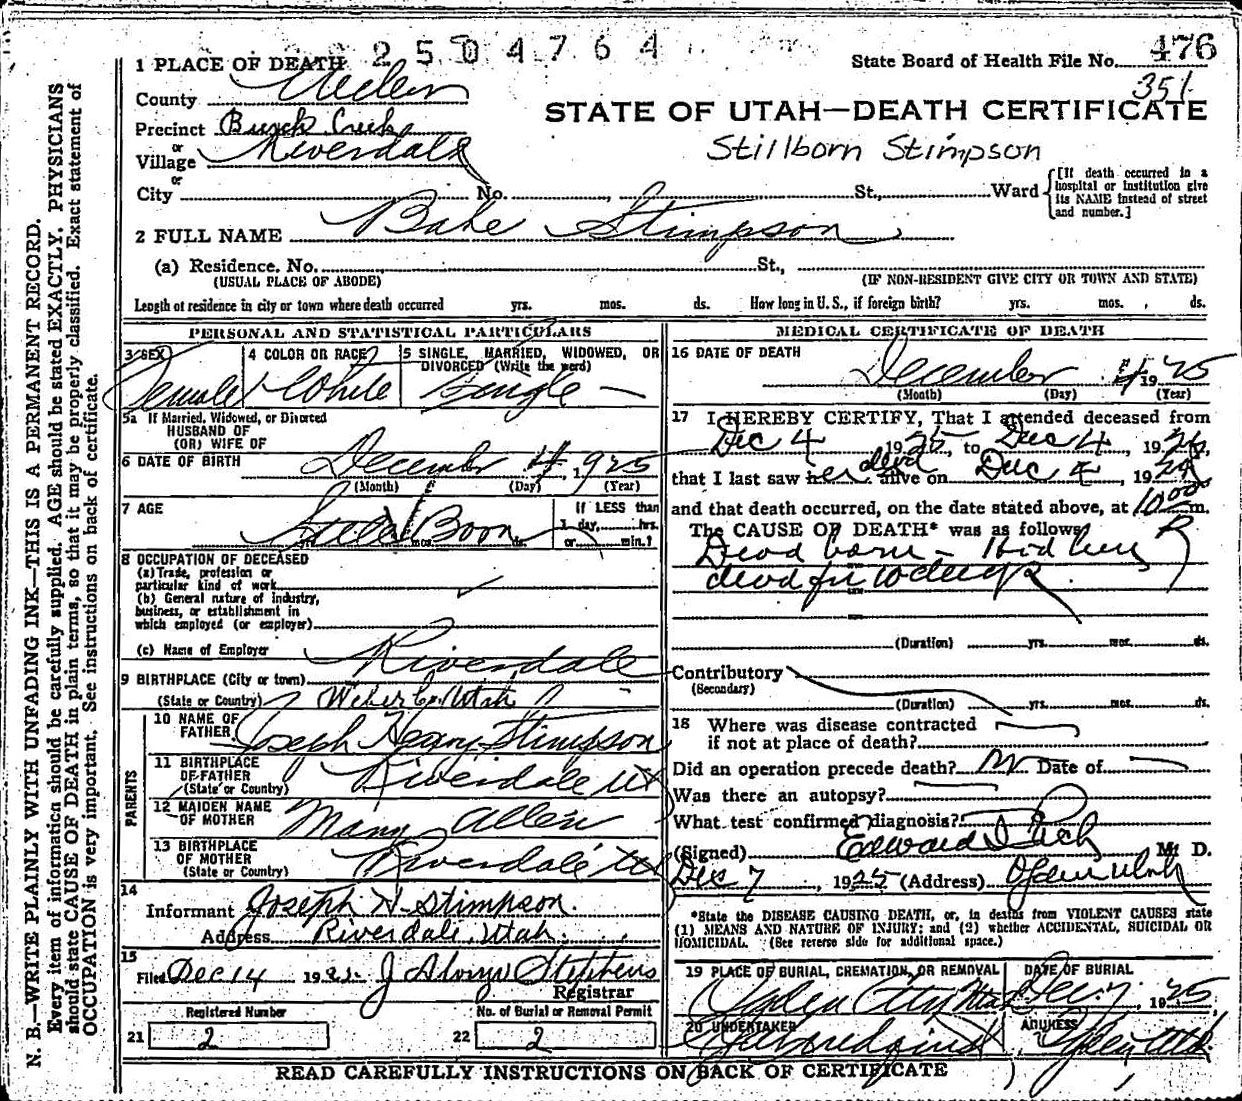 2504764
1 PLACE OF DEATH
State Board of Health File No. 476
351
County Weber
STATE OF UTAH—DEATH CERTIFICATE
Precinct Burch Creek
Stillborn Stimpson
or
Village Riverdale
or
City No. St., Ward
[If death occurred in a hospital or institution give its NAME instead of street and number.]
2 FULL NAME Babe Stimpson
(a) Residence. No. St.,
(USUAL PLACE OF ABODE) (IF NON-RESIDENT GIVE CITY OR TOWN AND STATE)
Length of residence in city or town where death occurred yrs. mos. ds. How long in U. S., if foreign birth? yrs. mos. ds.
PERSONAL AND STATISTICAL PARTICULARS
3 SEX 4 COLOR OR RACE 5 SINGLE, MARRIED, WIDOWED, OR
DIVORCED (Write the word)
Female White Single
5a If Married, Widowed, or Divorced
HUSBAND OF
(OR) WIFE OF
6 DATE OF BIRTH December 4, 1925
(Month) (Day) (Year)
7 AGE If LESS than
Still Born 1 day, hrs.
yrs. mos. ds. or min.?
8 OCCUPATION OF DECEASED
(a) Trade, profession or
particular kind of work
(b) General nature of industry,
business, or establishment in
which employed (or employer)
(c) Name of Employer
9 BIRTHPLACE (City or town) Riverdale
(State or Country) Weber Co. Utah
PARENTS
10 NAME OF
FATHER Joseph Henry Stimpson
11 BIRTHPLACE
OF FATHER
(State or Country) Riverdale Ut
12 MAIDEN NAME
OF MOTHER Mary Allen
13 BIRTHPLACE
OF MOTHER
(State or Country) Riverdale Ut
14
Informant Joseph H Stimpson.
Address Riverdale, Utah.
15
Filed Dec 14 192 J Stephens
Registrar
Registered Number No. of Burial or Removal Permit
21 2 22 2
MEDICAL CERTIFICATE OF DEATH
16 DATE OF DEATH
December 4 1925
(Month) (Day) (Year)
17 I HEREBY CERTIFY, That I attended deceased from
Dec 4 1925, to Dec 4, 192
that I last saw her dead alive on Dec 4, 192
and that death occurred, on the date stated above, at 10 00 m.
The CAUSE OF DEATH* was as follows
Dead born -
dead for 10 days
(Duration) yrs. mos. ds.
Contributory
(Secondary)
(Duration) yrs. mos. ds.
18 Where was disease contracted
if not at place of death?
Did an operation precede death? No Date of
Was there an autopsy?
What test confirmed diagnosis?
(Signed) Edward I Rich M. D.
Dec 7, 1925 (Address) Ogden Utah
*State the DISEASE CAUSING DEATH, or, in deaths from VIOLENT CAUSES state
(1) MEANS AND NATURE OF INJURY; and (2) whether ACCIDENTAL, SUICIDAL OR
HOMICIDAL. (See reverse side for additional space.)
19 PLACE OF BURIAL, CREMATION, OR REMOVAL DATE OF BURIAL
Ogden City Utah Dec. 7, 1925
20 UNDERTAKER ADDRESS
Ogden Utah.
READ CAREFULLY INSTRUCTIONS ON BACK OF CERTIFICATE
N. B.—WRITE PLAINLY WITH UNFADING INK—THIS IS A PERMANENT RECORD.
Every item of information should be carefully supplied. AGE should be stated EXACTLY. PHYSICIANS
should state CAUSE OF DEATH in plain terms, so that it may be properly classified. Exact statement of
OCCUPATION is very important. See instructions on back of certificate.